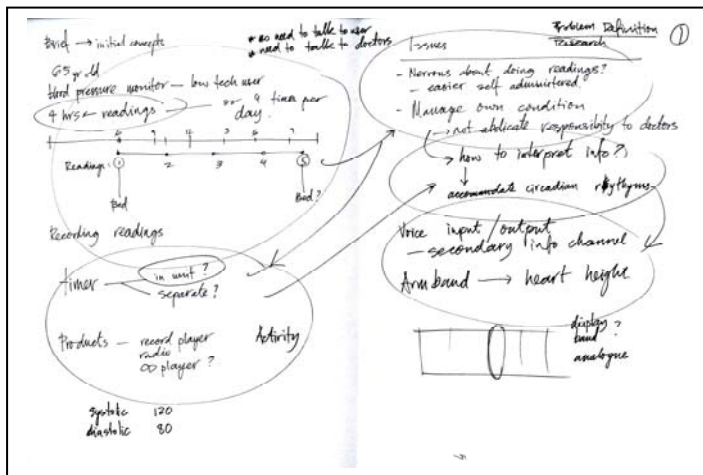 Brief → initial concepts
* no need to talk to user
* need to talk to doctors
65 yr old
blood pressure monitor — low tech user
4 hrs readings — or 4 times per day.
Readings: 1 2 3 4 5
Bed
Bed?
Recording readings
timer
in unit?
separate?
Products — record player
radio
CD player?
Activity
systolic 120
diastolic 80
Problem Definition
Research
1
Issues
- Nervous about doing readings?
- easier self administered.
- Manage own condition
→ not abdicate responsibility to doctors
→ how to interpret info?
↓
accomodate circadian rhythms
Voice input/output
- secondary info channel
Armband → heart height
display?
band
analogue